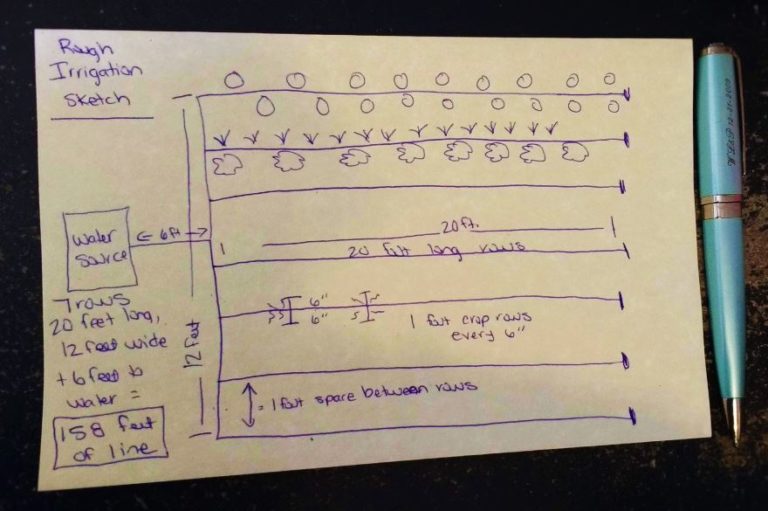 Rough
Irrigation
Sketch
Water
Source
6ft
20ft.
20 foot long rows
7 rows
20 feet long,
12 feet wide
+ 6 feet to
water =
158 feet
of line
12 feet
6"
6"
1 foot crop rows
every 6"
= 1 foot space between rows